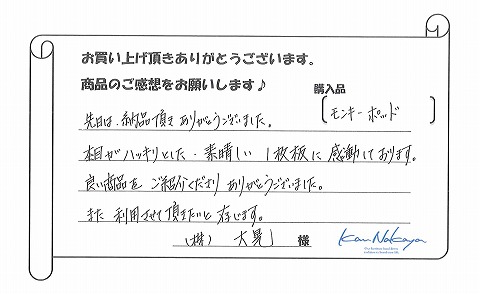 お買い上げ頂きありがとうございます。
商品のご感想をお願いします♪
購入品
[モンキーポッド]
先日は、納品頂きありがとうございました。
木目がハッキリとした、素晴しい1枚板に感動しております。
良い商品をご紹介くださりありがとうございました。
また利用させて頂きたいと存じます。
(株) 大晃 様
Kan Nakaya